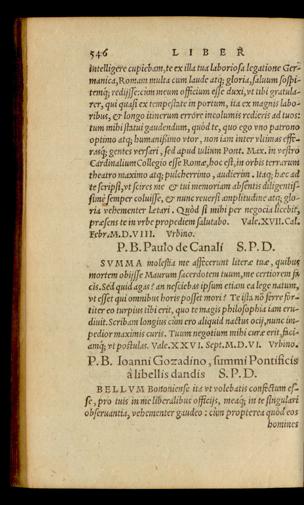 546 LIBER
intelligere cupiebam, te ex illa tua laboriosa legatione Ger-
manica, Romam multa cum laude atq; gloria, saluum sospi-
temq; redijsse: cùm meum officium esse duxi, vt tibi gratula-
rer, qui quasi ex tempestate in portum, ita ex magnis labo-
ribus, & longo itinerum errore incolumis redieris ad tuos:
tum mihi statui gaudendum, quòd te, quo ego vno patrono
optimo atq; humanissimo vtor, non iam inter vltimas effe-
rasq; gentes versari, sed apud Iulium Pont. Max. in vestro
Cardinalium Collegio esse Romæ, hoc est, in orbis terrarum
theatro maximo atq; pulcherrimo, audierim. Itaq; hæc ad
te scripsi, vt scires me & tui memoriam absentis diligentis-
simè semper coluisse, & nunc reuersi amplitudine atq; glo-
ria vehementer lætari. Quòd si mihi per negocia licebit,
præsens te in vrbe propediem salutabo. Vale. XVII. Cal.
Febr. M. D. VIII. Vrbino.
P. B. Paulo de Canali S. P. D.
SVMMA molestia me affecerunt literæ tuæ, quibus
mortem obijsse Maurum sacerdotem tuum, me certiorem fa
cis. Sed quid agas? an nesciebas ipsum etiam ea lege natum,
vt esset qui omnibus horis posset mori? Te ista nō ferre for-
titer eo turpius tibi erit, quo te magis philosophia iam eru-
diuit. Scribam longius cùm ero aliquid nactus ocij, nunc im-
pedior maximis curis. Tuum negotium mihi curæ erit, faci-
amq; vt postulas. Vale. XXVI. Sept. M. D. VI. Vrbino.
P. B. Ioanni Gozadino, summi Pontificis
à libellis dandis S. P. D.
BELLVM Bononiense ita vt volebatis confectum es-
se, pro tuis in me liberalibus officijs, meaq; in te singulari
obseruantia, vehementer gaudeo: cùm propterea quòd eos
homines